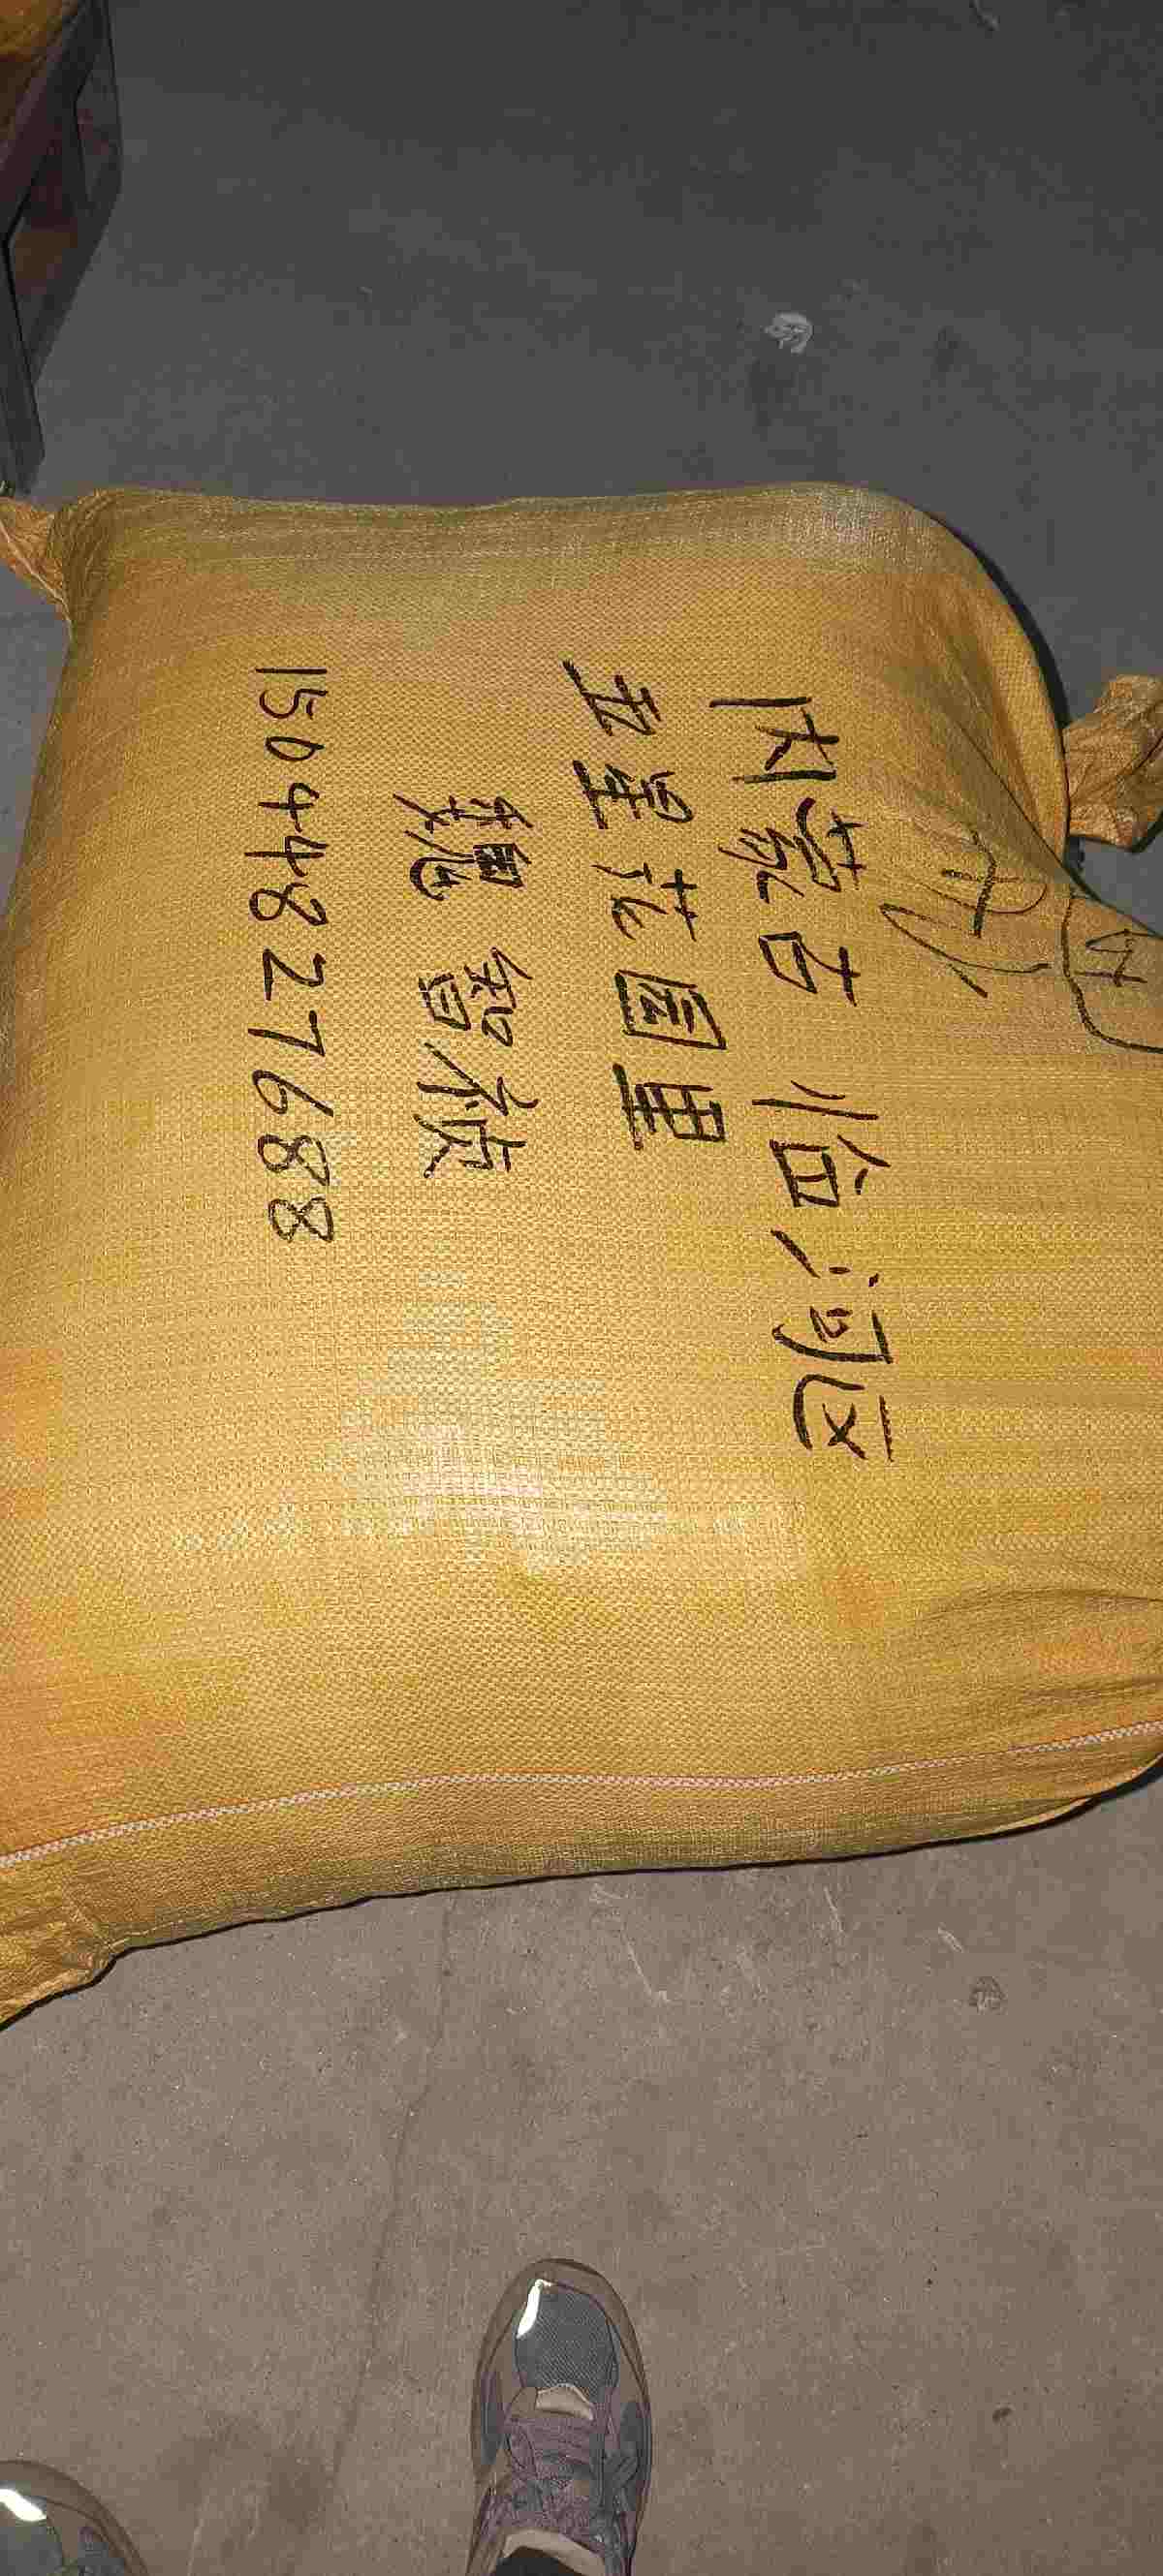 内蒙古 临河区
五星花园里
魏智祯
15044827688